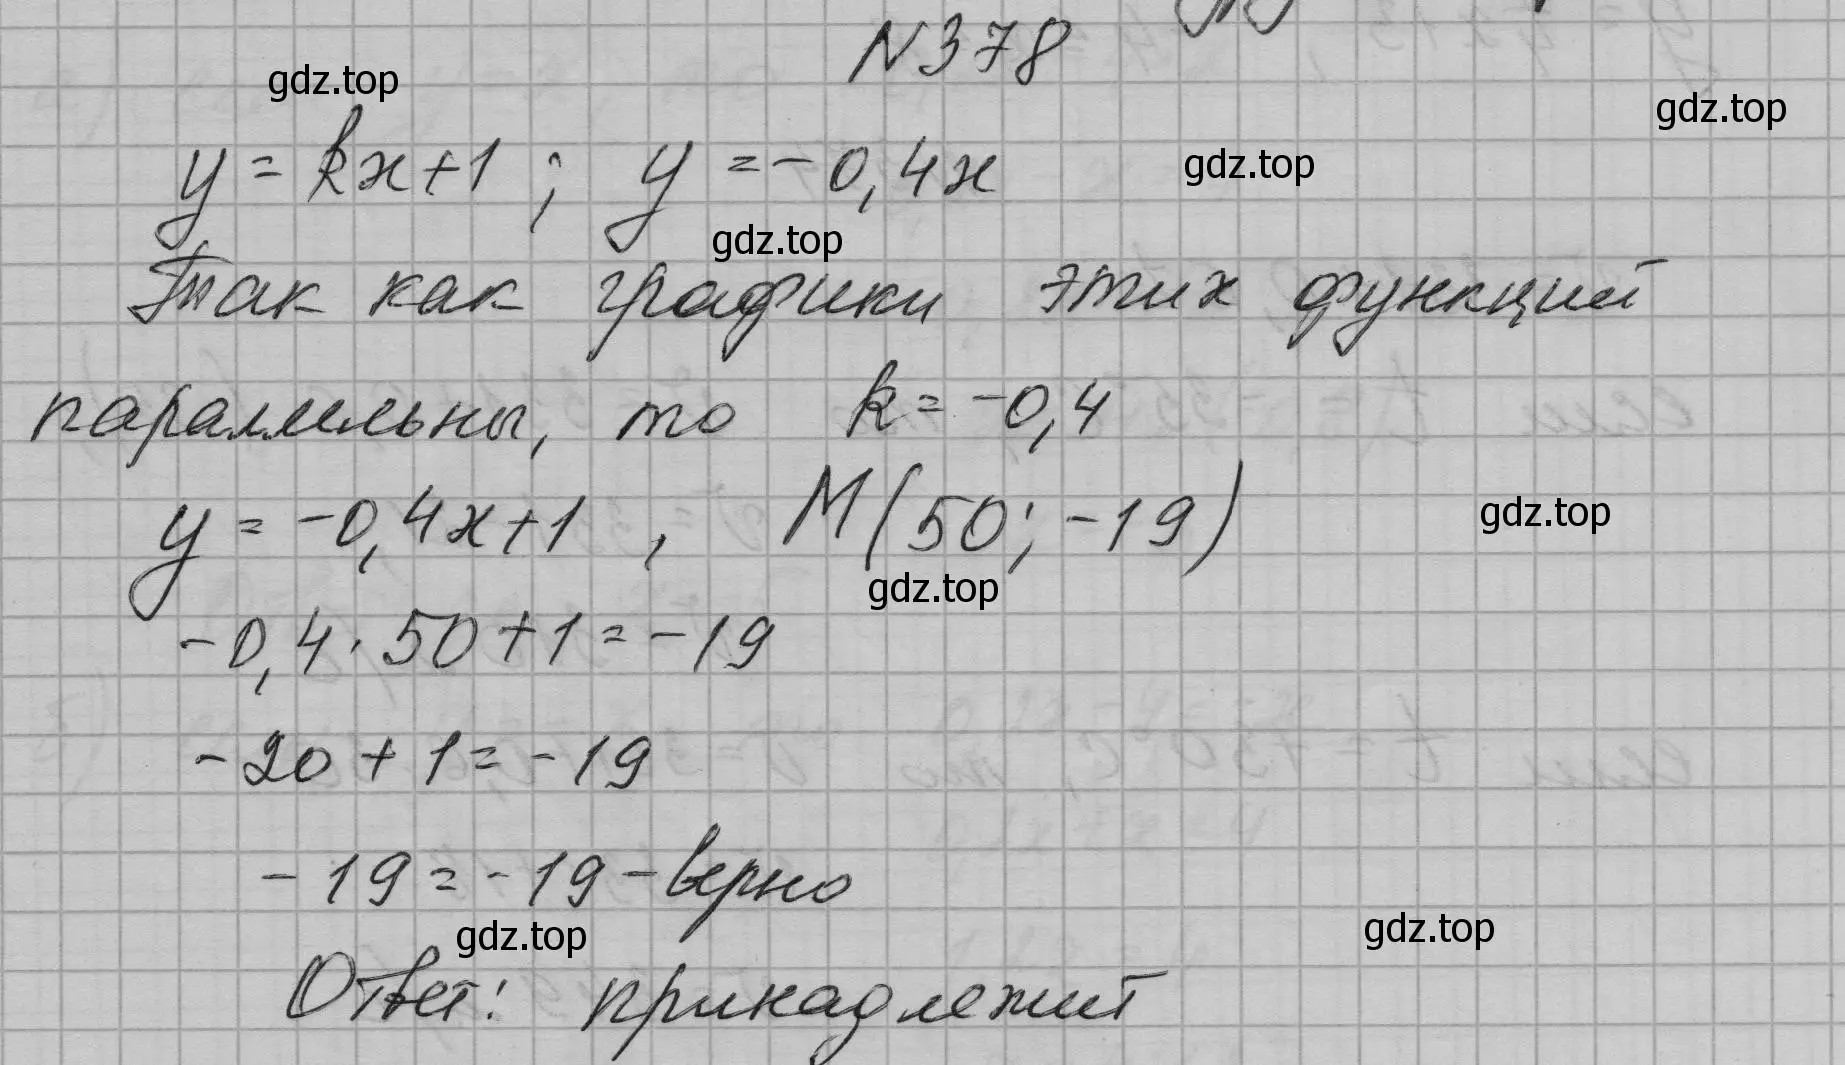 N378
gdz.top
gdz.top
y = kx+1 ; y = -0,4x
gdz.top
gdz.top
Так как графики этих функций
параллельны, то k = -0,4
y = -0,4x+1 , M(50; -19)
gdz.top
gdz.top
-0,4·50+1=-19
-20+1=-19
-19=-19-верно
gdz.top
gdz.top
Ответ: принадлежит